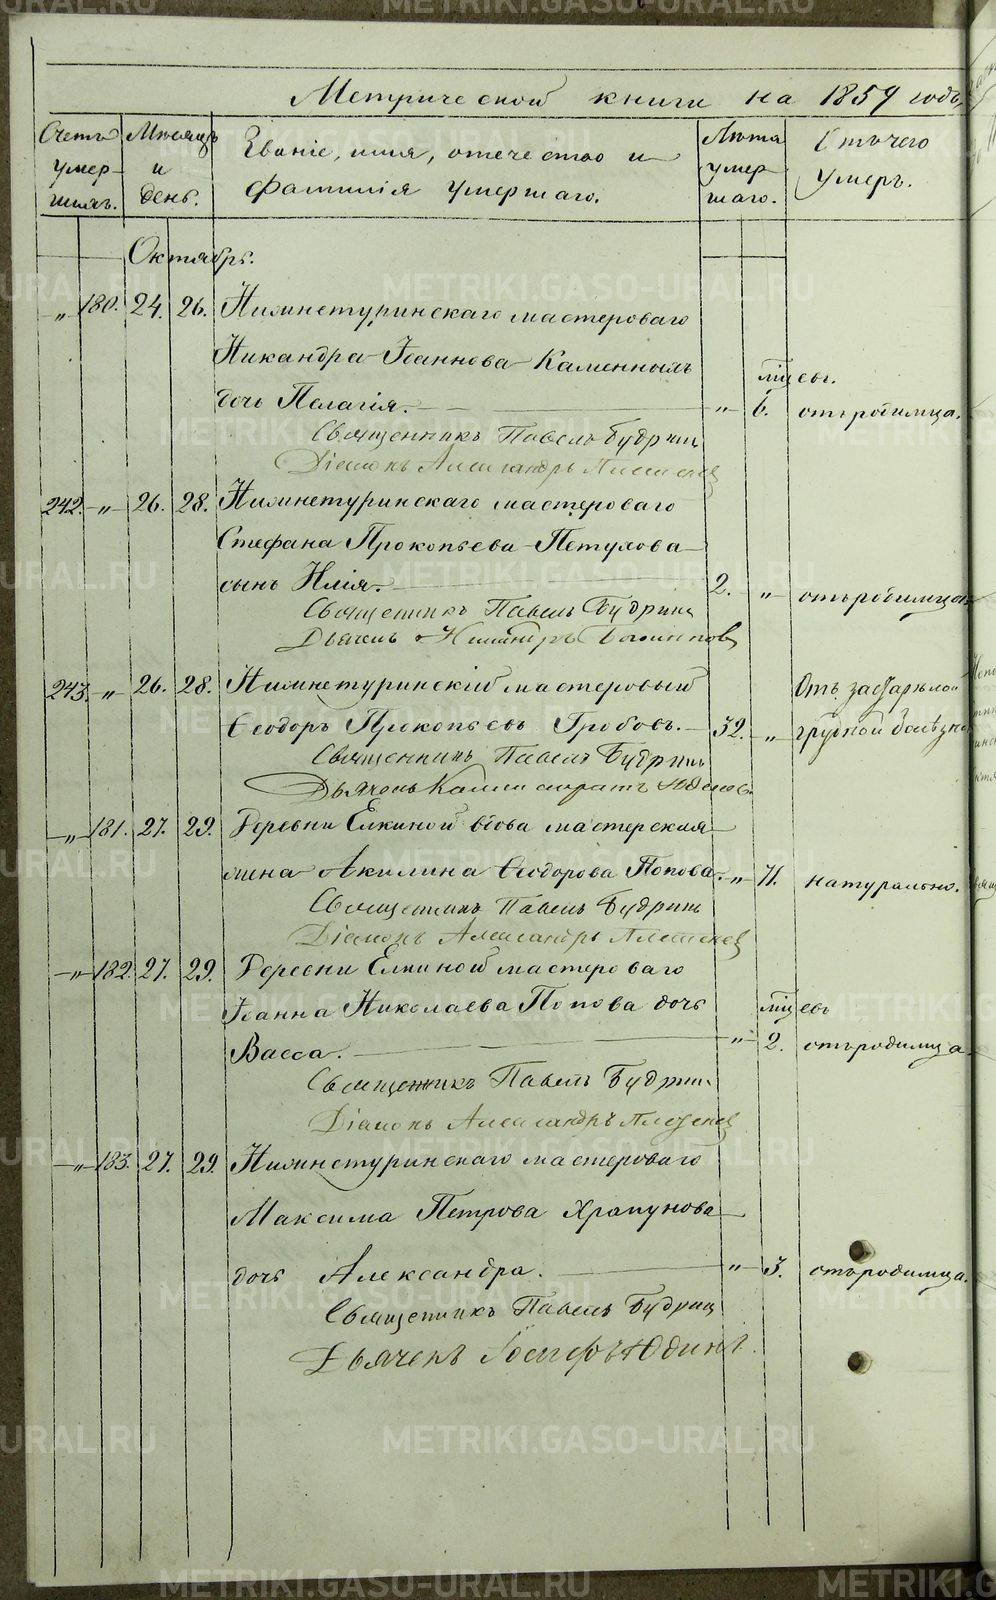 METRIKI.GASO-URAL.RU
Метрической книги на 1859 годъ,
Счетъ умер-шихъ.
Мѣсяцъ и день.
Званіе, имя, отечество и фамилія умершаго.
Лѣта умер-шаго.
Отъ чего умеръ.
Октябрь.
„ 180. 24. 26. Нижнетуринскаго мастероваго
Никандра Іоаннова Каменныхъ мѣсец.
дочь Пелагія. „ 6. отъ родимца.
Священникъ Павелъ Будринъ
Діаконъ Александръ
242. „ 26. 28. Нижнетуринскаго мастероваго
Стефана Прокопьева Петухова
сынъ Илія. 2. „ отъ родимца
Священникъ Павелъ Будринъ
Дьячекъ
243. „ 26. 28. Нижнетуринскій мастеровый Отъ застарѣлой
Ѳеодоръ Прокопьевъ Гробовъ. 32. „ грудной болѣзни
Священникъ Павелъ Будринъ
Дьячекъ
„ 181. 27. 29. Деревни Елкиной вдова мастерская
жена Акилина Ѳеодорова Попова. „ 71. натурально.
Священникъ Павелъ Будринъ
Діаконъ Александръ
„ 182. 27. 29. Деревни Елкиной мастероваго
Іоанна Николаева Попова дочь мѣсец
Васса. „ 2. отъ родимца.
Священникъ Павелъ Будринъ
Діаконъ Александръ
„ 183. 27. 29. Нижнетуринскаго мастероваго
Максима Петрова Храпунова
дочь Александра. „ 3. отъ родимца.
Священникъ Павелъ Будринъ
Дьячекъ Іосифъ Юдинъ.